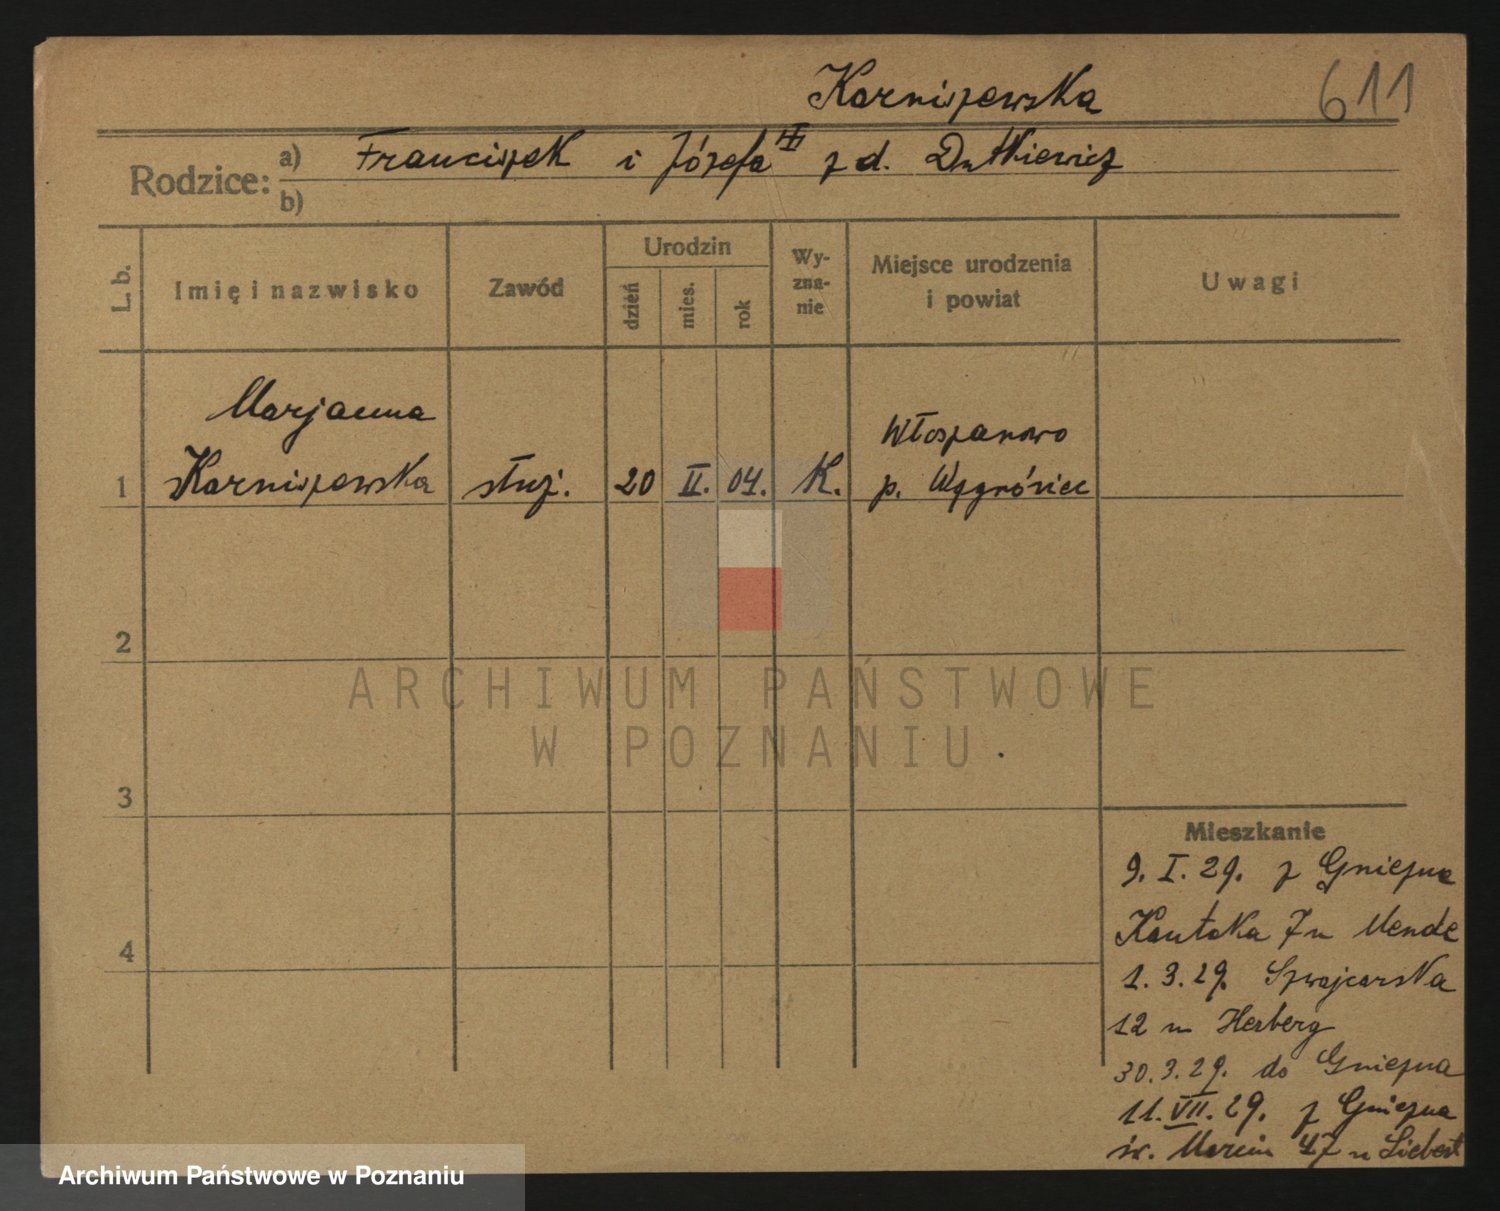 Karniszewska
611
Rodzice: a) Franciszek i Józefa z d. Dutkiewicz
b)
L. b.
Imię i nazwisko
Zawód
Urodzin
dzień
mies.
rok
Wy-
zna-
nie
Miejsce urodzenia
i powiat
Uwagi
Marjanna
Karniszewska
1
służ.
20
II.
04.
K.
Włoszanowo
p. Wągrówiec
2
3
4
ARCHIWUM PAŃSTWOWE
W POZNANIU
Mieszkanie
9. I. 29. z Gniezna
Kantaka 7 u Mende
1. 3. 29. Szwajcarska
12 u Herberg
30. 3. 29. do Gniezna
11. VII. 29. z Gniezna
św. Marcin 47 u Liebert
Archiwum Państwowe w Poznaniu